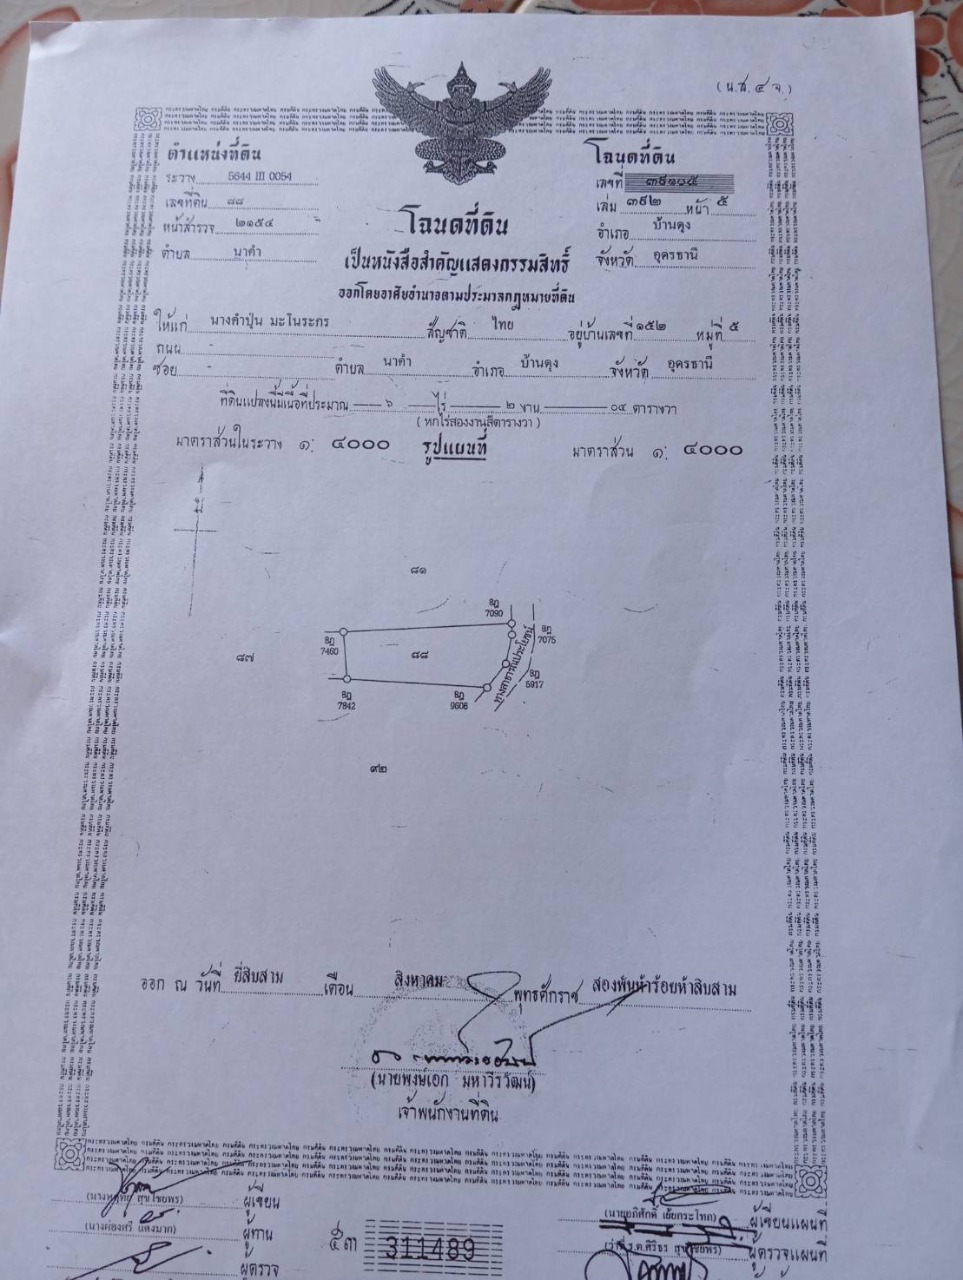 (น.ส.๔ จ.)
ตำแหน่งที่ดิน
ระวาง 5644 III 0054
เลขที่ดิน ๘๘
หน้าสำรวจ ๒๑๕๔
ตำบล นาคำ
โฉนดที่ดิน
เลขที่ ๓๙๑๐๕
เล่ม ๓๙๒ หน้า ๕
อำเภอ บ้านดุง
จังหวัด อุดรธานี
โฉนดที่ดิน
เป็นหนังสือสำคัญแสดงกรรมสิทธิ์
ออกโดยอาศัยอำนาจตามประมวลกฎหมายที่ดิน
ให้แก่ นางคำปุ่น มะโนระกร สัญชาติ ไทย อยู่บ้านเลขที่ ๑๕๒ หมู่ที่ ๕
ถนน -
ซอย - ตำบล นาคำ อำเภอ บ้านดุง จังหวัด อุดรธานี
ที่ดินแปลงนี้มีเนื้อที่ประมาณ ๖ ไร่ ๒ งาน ๐๔ ตารางวา
(หกไร่สองงานสี่ตารางวา)
มาตราส่วนในระวาง ๑: ๔๐๐๐ รูปแผนที่ มาตราส่วน ๑: ๔๐๐๐
น
๘๑
ธฎ 7090
ธฎ 7075
ธฎ 7460
๘๗
๘๘
ทางสาธารณประโยชน์
ธฎ 5917
ธฎ 7842
ธฎ 9608
๙๒
ออก ณ วันที่ ยี่สิบสาม เดือน สิงหาคม พุทธศักราช สองพันห้าร้อยห้าสิบสาม
(นายพงษ์เอก มหาวีรวัฒน์)
เจ้าพนักงานที่ดิน
ผู้เขียน
(นายอภิศักดิ์ เย็ยกระโทก) ผู้เขียนแผนที่
(นางผ่องศรี แหงมาก) ผู้ทาน
ผู้ตรวจแผนที่
ผู้ตรวจ
๕๓ 311489